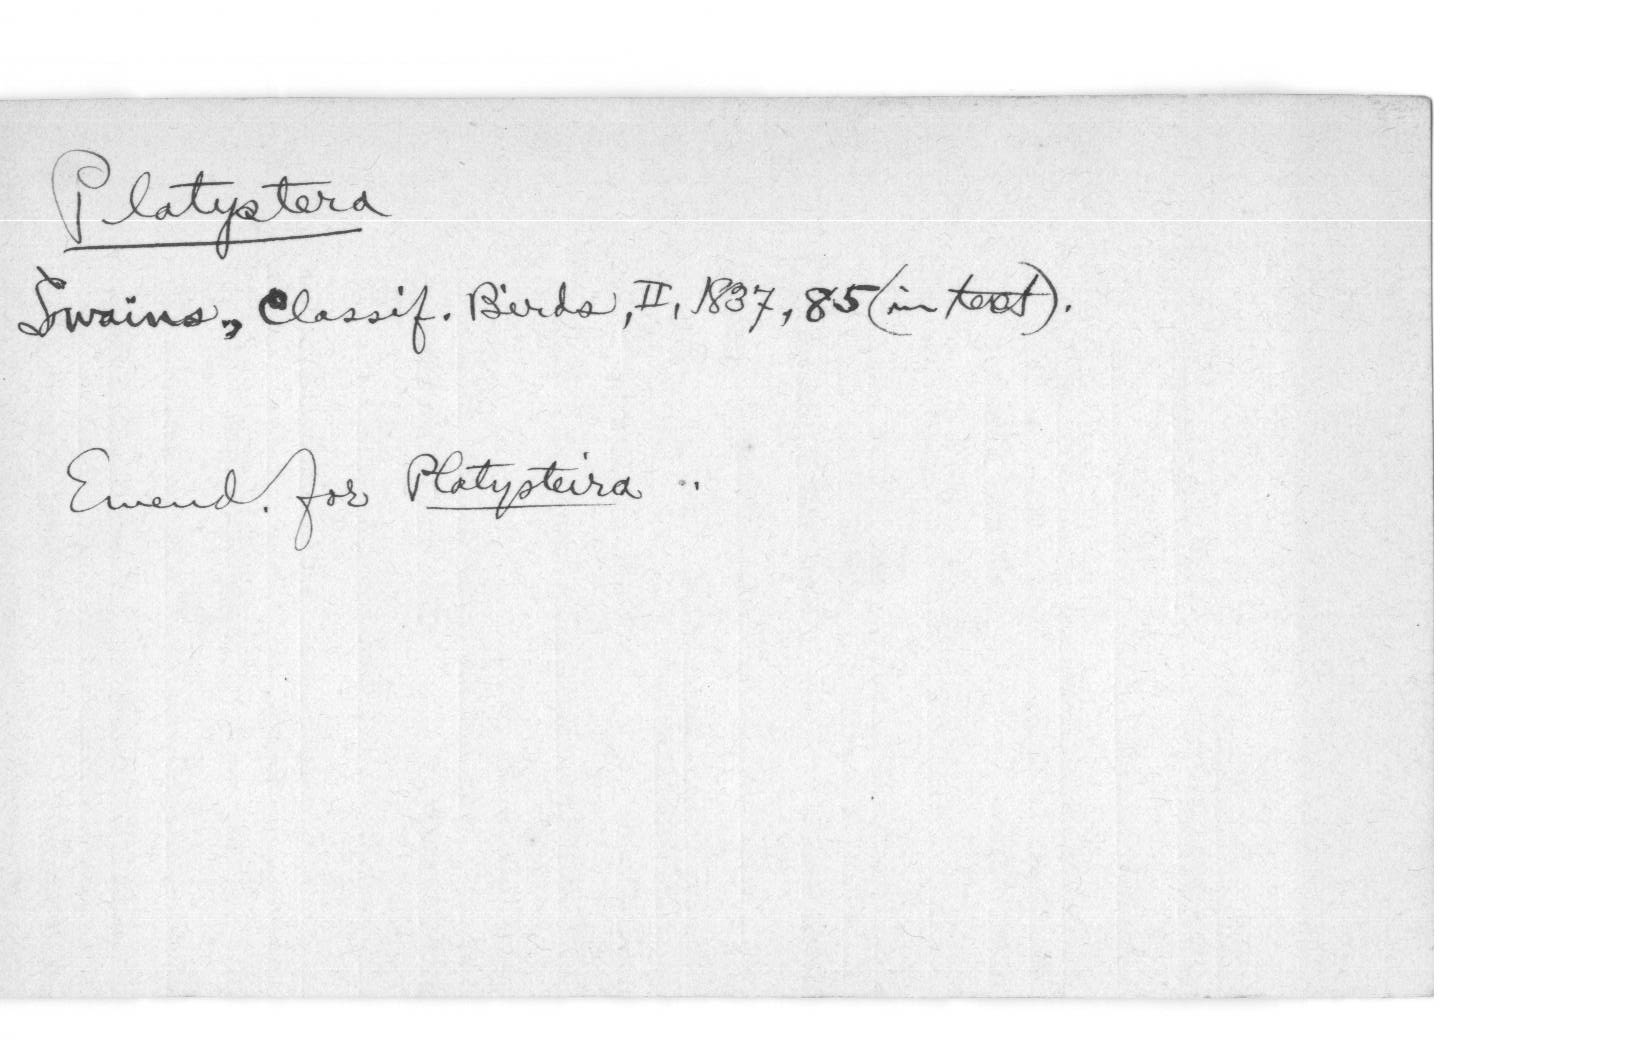 Platystera
Swains., Classif. Birds, II, 1837, 85 (in text).
Emend. for Platysteira ..